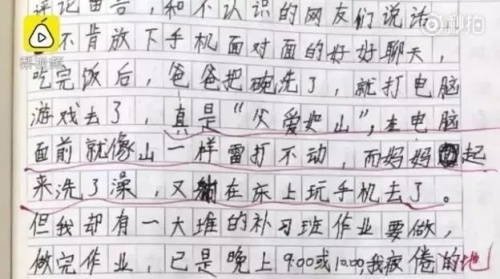 评论留言，和不认识的网友们说话
不肯放下手机面对面的好好聊天，
吃完饭后，爸爸把碗洗了，就打电脑
游戏去了，真是“父爱如山”，坐电脑
面前就像山一样雷打不动，而妈妈起
来洗了澡，又躺在床上玩手机去了。
但我却有一大堆的补习班作业要做，
做完作业，已是晚上9:00或10:00，我疲倦的地
秒拍